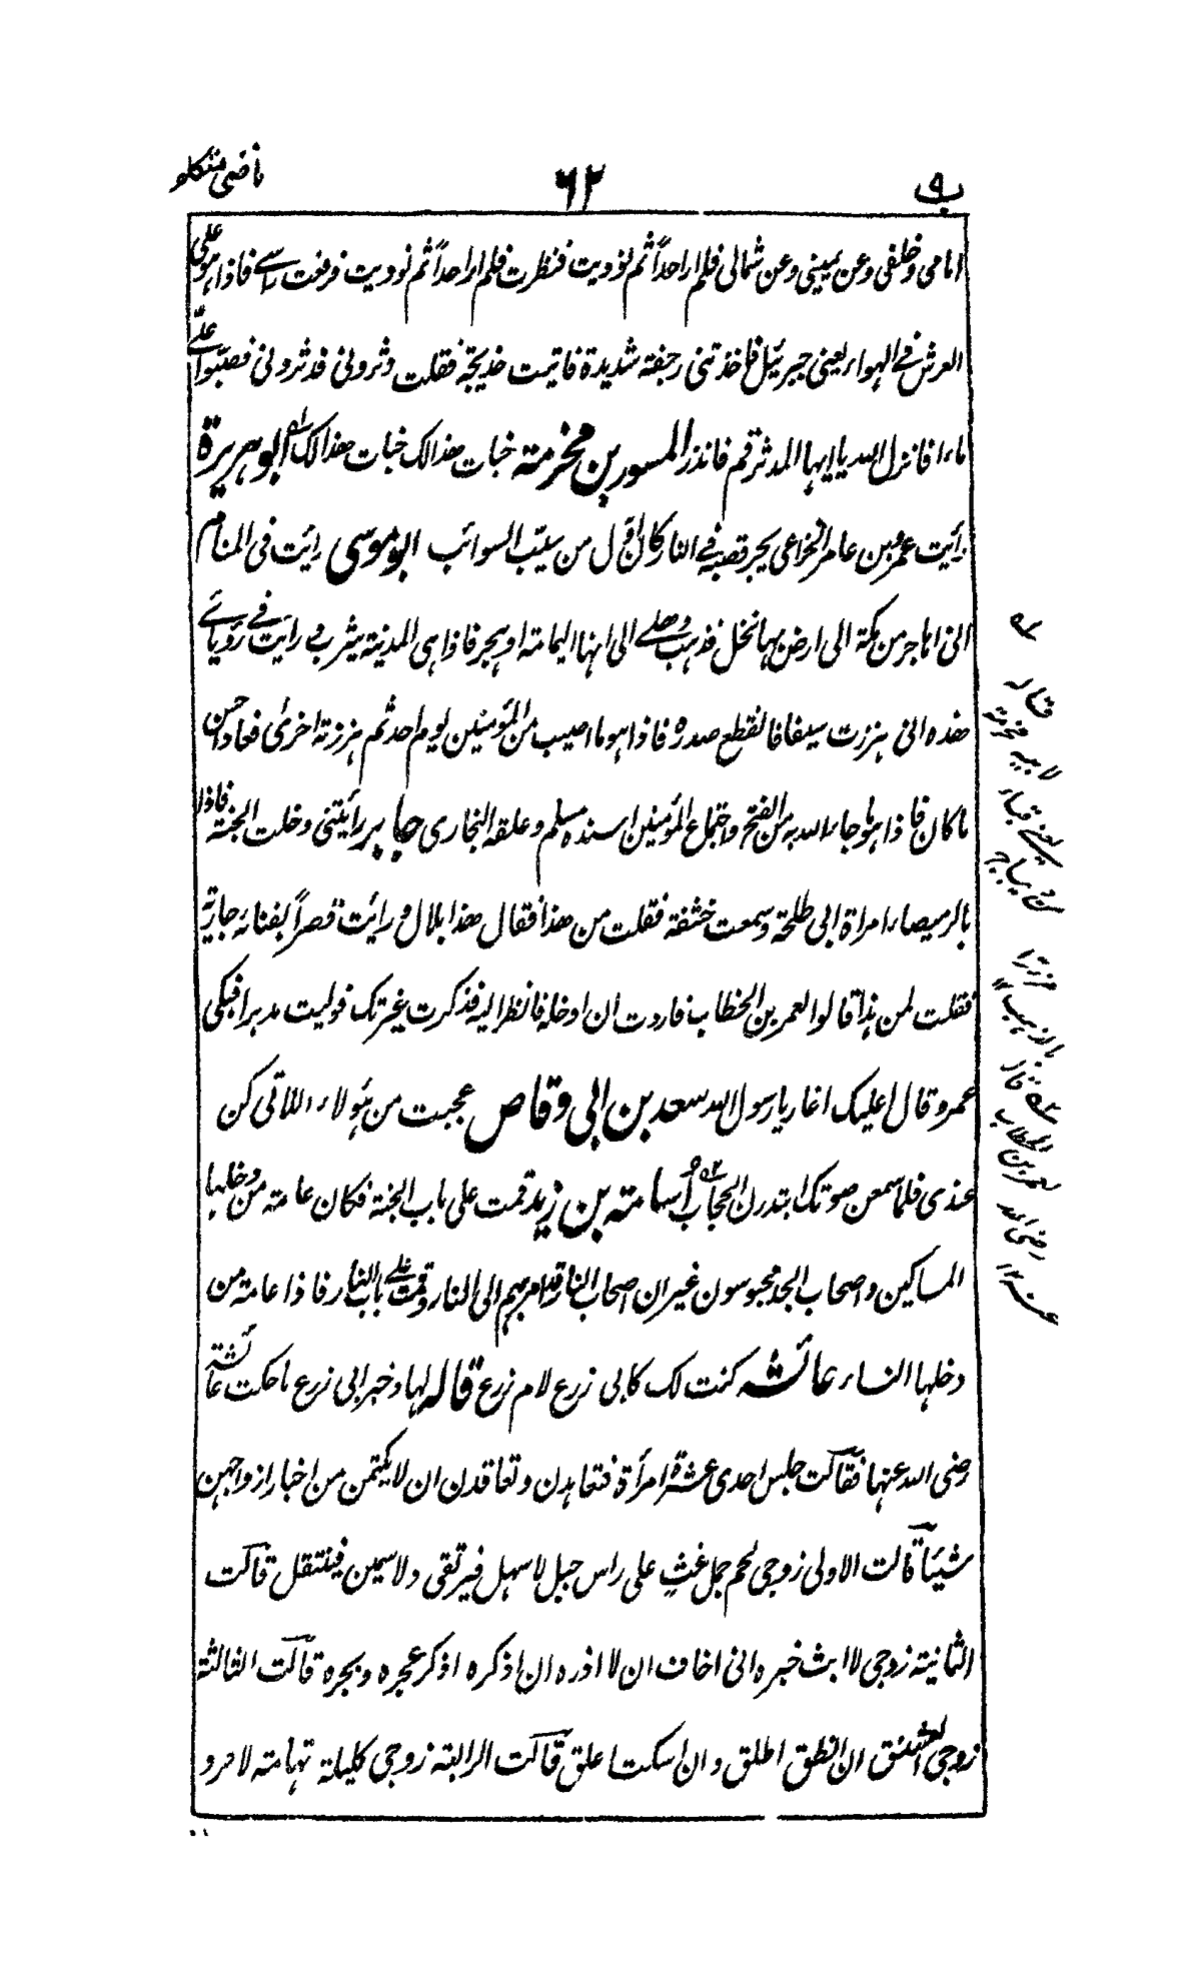 ب ٩
٦٢
ماضی متکلم
امامی وخلفی وعن یمینی وعن شمالی فلم ار احداً ثم نودیت فنظرت فلم ار احداً ثم نودیت فرفعت راسے فاذا ہو علی
العرش فے الہواء یعنی جبرئیل فاخذتنی رجفة شدیدة فاتیت خدیجة فقلت دثرونی فدثرونی فصبّوا علیّ
ماءا فانزل اللہ یا ایہا المدثر قم فانذر المسور بن مخرمة خبات هذا لک خبات هذا لک ابو ہریرة
رأیت عمرو بن عامر الخزاعی یجر قصبہ فے النار کان اوّل من سیّب السوائب ابو موسی رایت فی المنام
انی اہاجر من مکة الی ارض بہا نخل فذہب وہلے الی انہا الیمامة او ہجر فاذا ہی المدینة یثرب و رایت فے رؤیائے
هذه انی ہززت سیفا فانقطع صدره فاذا ہو ما اصیب من المؤمنین یوم احد ثم ہززتہ اخری فعاد احسن
ما کان فاذا ہو ما جاء اللہ بہ من الفتح واجتماع المؤمنین اسنده مسلم وعلقہ البخاری جابر رأیتنی دخلت الجنة فاذا
بالرمیصاء امراة ابی طلحة وسمعت خشفة فقلت من هذا فقال هذا بلال و رأیت قصراً بفنائہ جاریة
فقلت لمن ہذا قالوا لعمر بن الخطاب فاردت ان ادخلہ فانظر الیہ فذکرت غیرتک فولیت مدبرا فبکی
عمر وقال اعلیک اغار یا رسول اللہ سعد بن ابی وقاص عجبت من ہؤلاء اللاتی کن
عندی فلما سمعن صوتک ابتدرن الحجاب اسامة بن زید قمت علی باب الجنة فکان عامة من دخلہا
المساکین واصحاب الجد محبوسون غیر ان اصحاب النار قد امر بہم الی النار وقمت علے باب النار فاذا عامة من
دخلہا النساء عائشہ کنت لک کابی زرع لام زرع قالہ لہا وخبر ابی زرع ما حکت عائشة
رضی اللہ عنہا فقالت جلس احدی عشرة امرأة فتعاہدن وتعاقدن ان لا یکتمن من اخبار ازواجہن
شیئا قالت الاولی زوجی لحم جمل غث علی راس جبل لا سہل فیرتقی ولا سمین فینتقل قالت
الثانیة زوجی لا ابث خبره انی اخاف ان لا اذره ان اذکره اذکر عجره وبجره قالت الثالثة
زوجی العشنق ان انطق اطلق وان اسکت اعلق قالت الرابعة زوجی کلیلة تہامة لا حر و
لہ
قالہ
لابیہ مخرمة
یعنی قباء
من
بالذہب
عمر بن الخطاب
رضی اللہ
عنہ